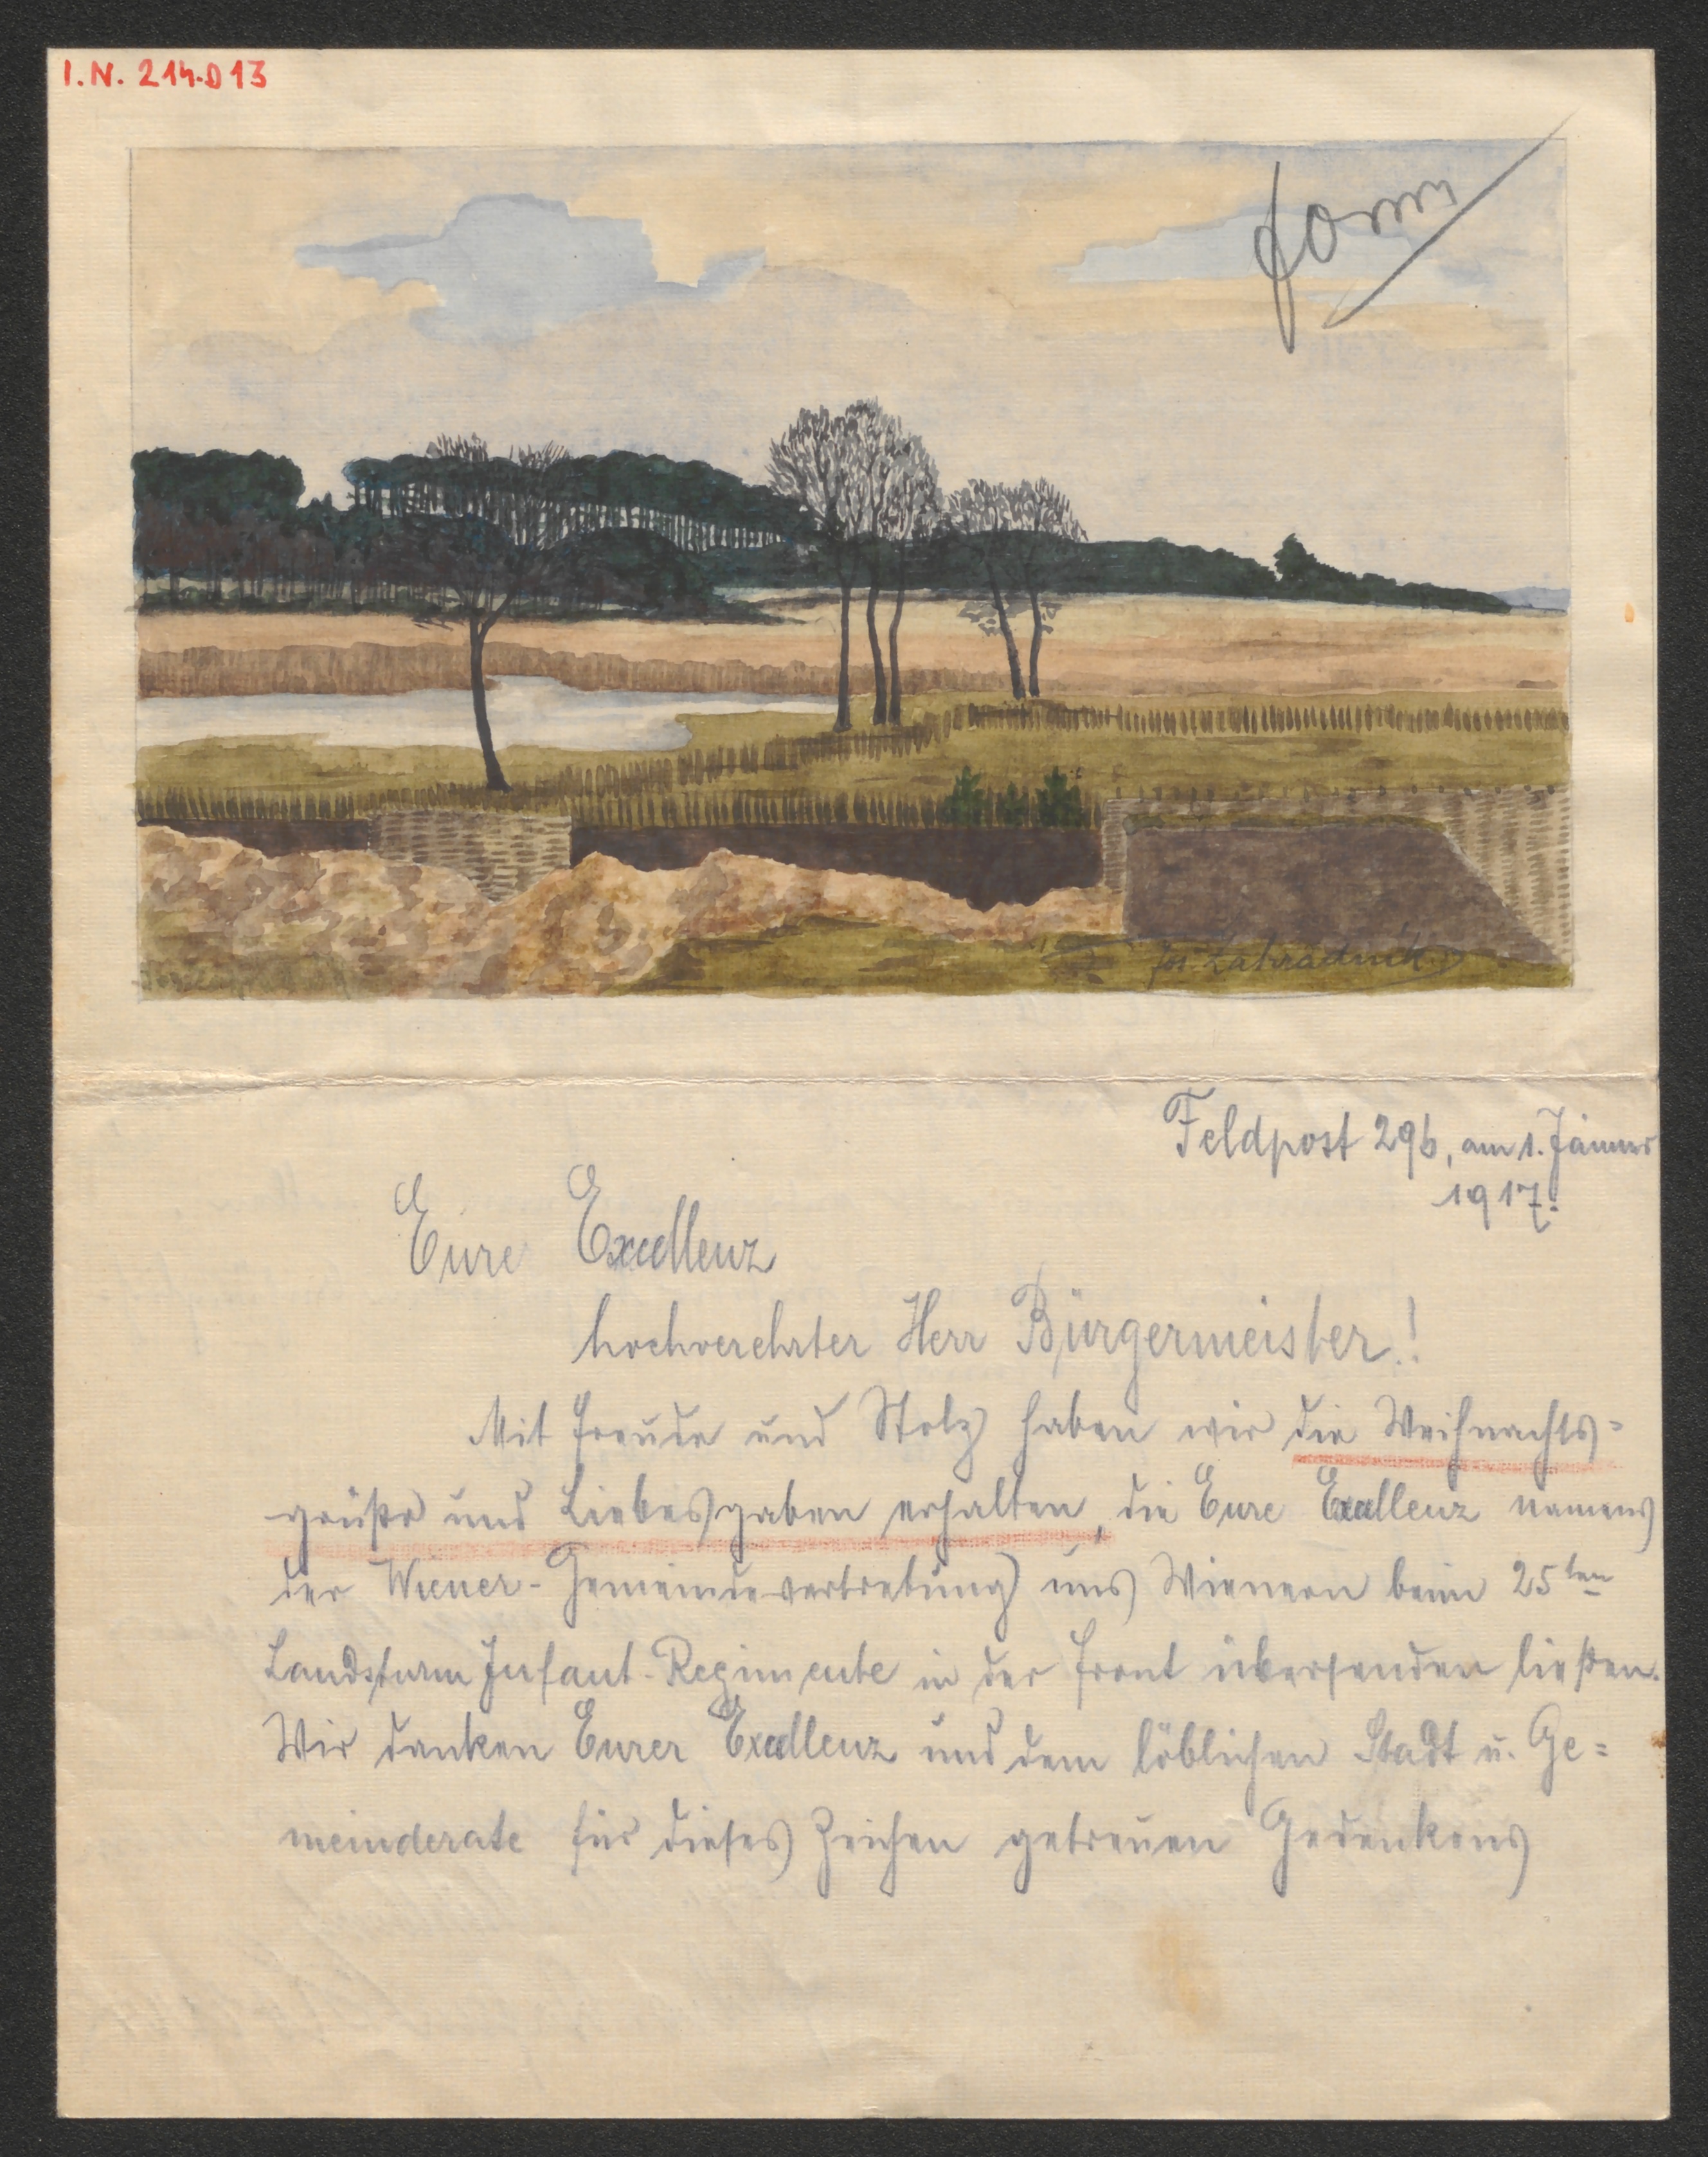 I.N. 214.013
Jos. Zahradnik
Feldpost 296, am 1. Jänner
1917.
Eure Excellenz
hochverehrter Herr Bürgermeister!
Mit Freude und Stolz haben wir die Weihnachts=
grüße und Liebesgaben erhalten, die Eure Excellenz namens
der Wiener-Gemeindevertretung uns Wienern beim 25ten
Landsturm Infant-Regimente in der Front übersenden ließen.
Wir danken Eurer Excellenz und dem löblichen Stadt u. Ge=
meinderate für dieses Zeichen getreuen Gedenkens